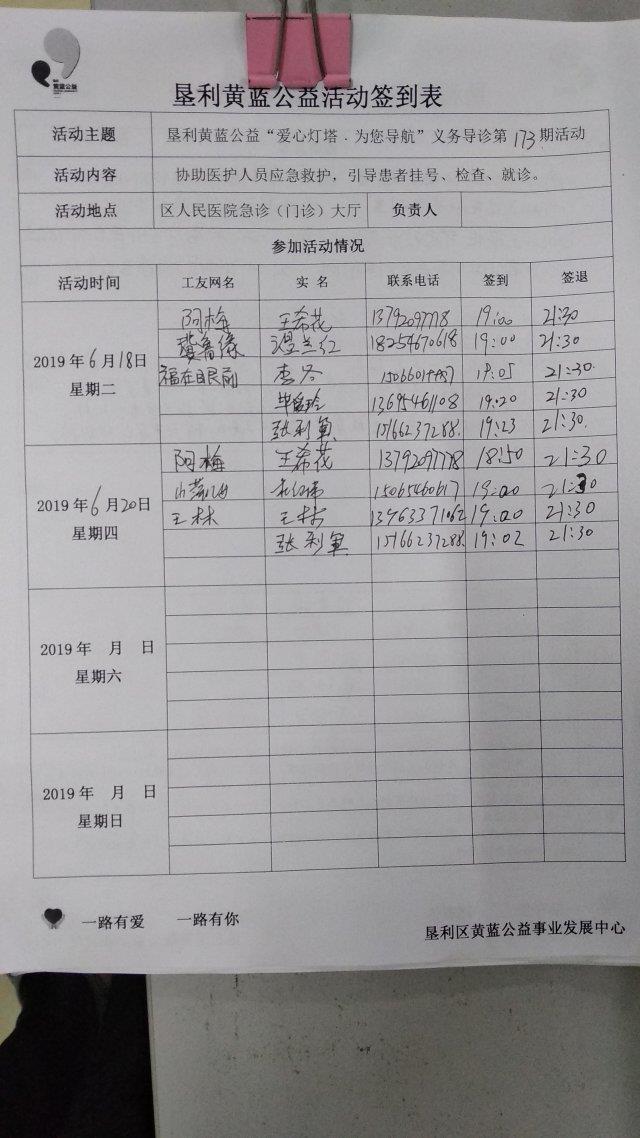 黄蓝公益
垦利黄蓝公益活动签到表
活动主题 垦利黄蓝公益“爱心灯塔．为您导航”义务导诊第173期活动
活动内容 协助医护人员应急救护，引导患者挂号、检查、就诊。
活动地点 区人民医院急诊（门诊）大厅 负责人
参加活动情况
活动时间 工友网名 实 名 联系电话 签到 签退
2019年6月18日 星期二
阿梅 王希花 13792097778 19:00 21:30
18254670618 19:00 21:30
福在眼前 李冬 19:05 21:30
13695461108 19:20 21:30
张利军 15166237288 19:23 21:30
2019年6月20日 星期四
阿梅 王希花 13792097778 18:50 21:30
15065460617 19:00 21:30
王林 王林 13963371062 19:00 21:30
张利军 15166237288 19:02 21:30
2019年 月 日
星期六
2019年 月 日
星期日
一路有爱 一路有你
垦利区黄蓝公益事业发展中心